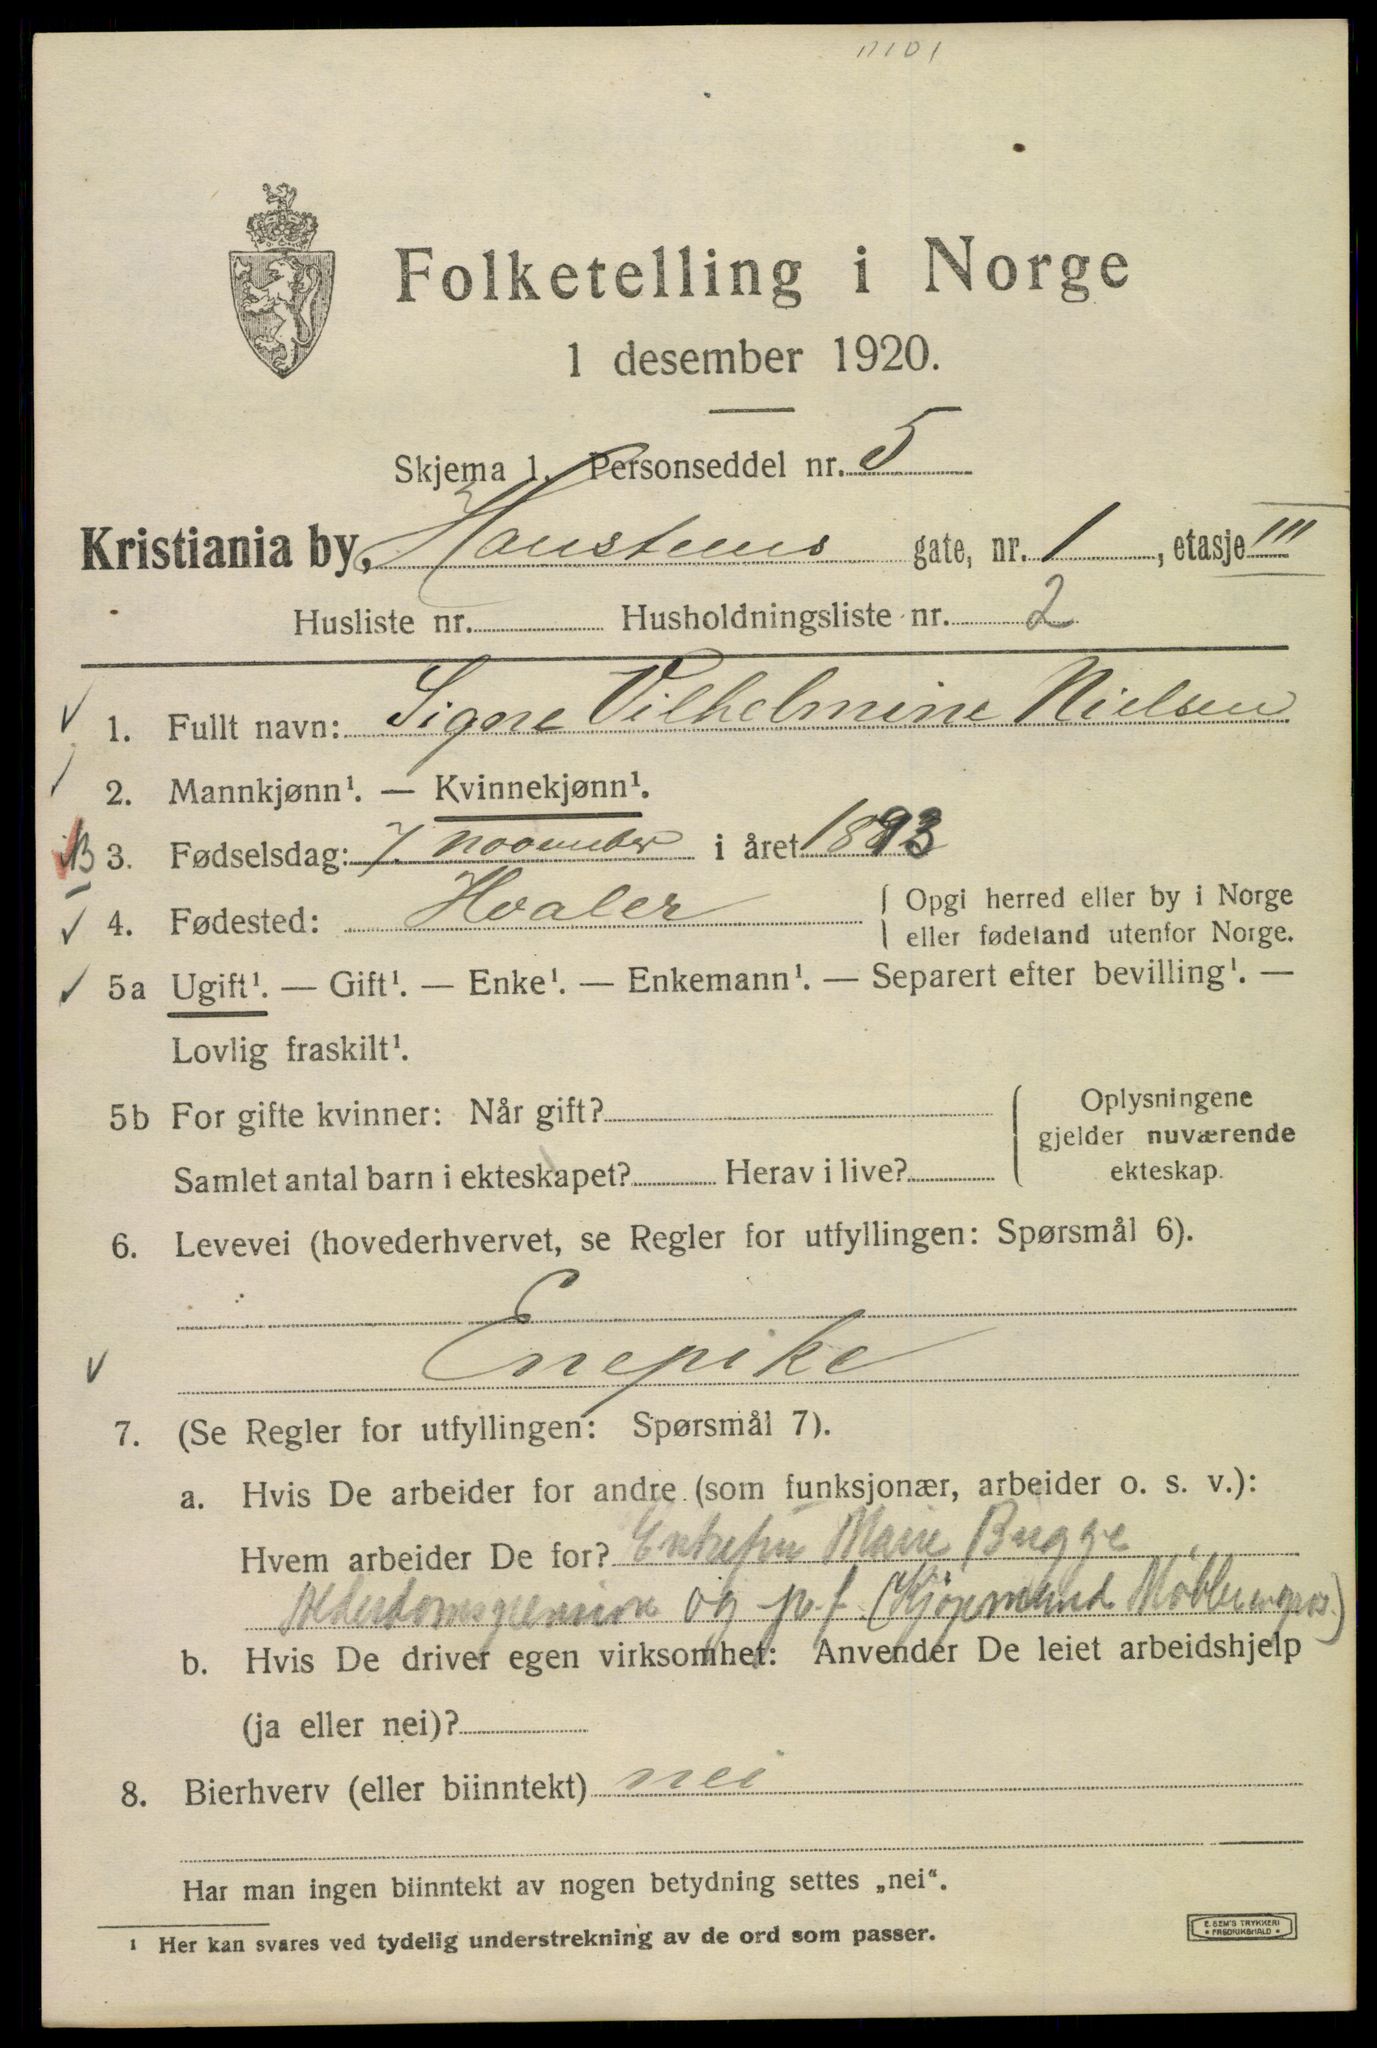 Folketelling i Norge
1 desember 1920.
Skjema 1. Personseddel nr. 5
Kristiania by, Hansteens gate, nr. 1, etasje III
Husliste nr. Husholdningsliste nr. 2
1. Fullt navn: Signe Vilhelmine Nielsen
2. Mannkjønn¹. — Kvinnekjønn¹.
3. Fødselsdag: 7. november i året 1893
4. Fødested: Hvaler { Opgi herred eller by i Norge
eller fødeland utenfor Norge.
5a Ugift¹. — Gift¹. — Enke¹. — Enkemann¹. — Separert efter bevilling¹. —
Lovlig fraskilt¹.
5b For gifte kvinner: Når gift? { Oplysningene
gjelder nuværende
Samlet antal barn i ekteskapet? Herav i live? ekteskap.
6. Levevei (hovederhvervet, se Regler for utfyllingen: Spørsmål 6).
Enepike
7. (Se Regler for utfyllingen: Spørsmål 7).
a. Hvis De arbeider for andre (som funksjonær, arbeider o. s. v.):
Hvem arbeider De for? Enkefru Marie Bugge
og p.f. (Kjøpmand
b. Hvis De driver egen virksomhet: Anvender De leiet arbeidshjelp
(ja eller nei)?
8. Bierhverv (eller biinntekt) nei
Har man ingen biinntekt av nogen betydning settes „nei“.
¹ Her kan svares ved tydelig understrekning av de ord som passer.
E. SEM'S TRYKKERI
FREDRIKSHALD